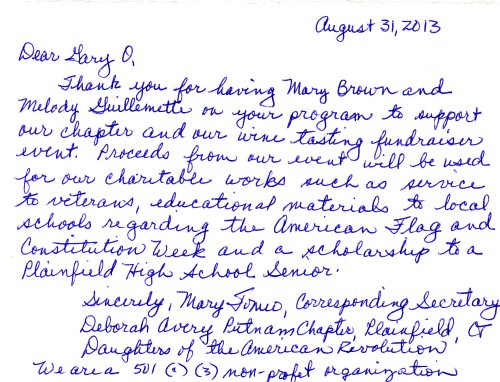 August 31, 2013
Dear Gary O,
Thank you for having Mary Brown and
Melody Guillemette on your program to support
our chapter and our wine tasting fundraiser
event. Proceeds from our event will be used
for our charitable works such as service
to veterans, educational materials to local
schools regarding the American Flag and
Constitution Week and a scholarship to a
Plainfield High School Senior.
Sincerely, Mary Corresponding Secretary
Deborah Avery Putnam Chapter, Plainfield, CT
Daughters of the American Revolution
We are a 501 (c) (3) non-profit organization